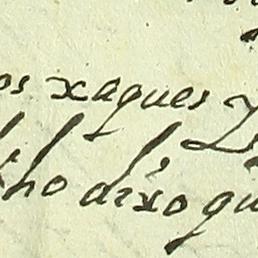 os xaques
cho dixo qu